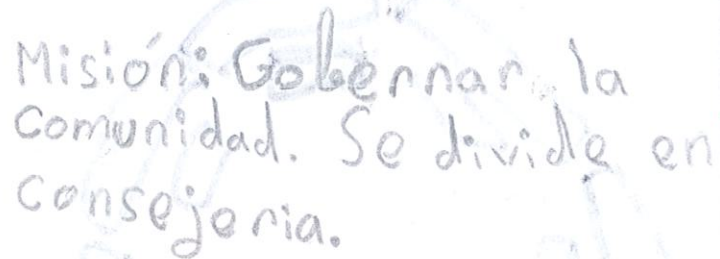 Misión: Gobernar la
Comunidad. Se divide en
consejeria.